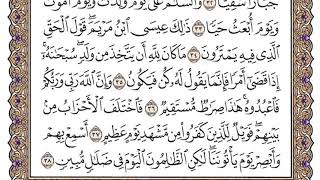 جَبَّارًا شَقِيًّا ٣٢ وَالسَّلَٰمُ عَلَىَّ يَوْمَ وُلِدتُّ وَيَوْمَ أَمُوتُ
وَيَوْمَ أُبْعَثُ حَيًّا ٣٣ ذَٰلِكَ عِيسَى ٱبْنُ مَرْيَمَ ۚ قَوْلَ ٱلْحَقِّ
ٱلَّذِى فِيهِ يَمْتَرُونَ ٣٤ مَا كَانَ لِلَّهِ أَن يَتَّخِذَ مِن وَلَدٍ ۖ سُبْحَٰنَهُۥٓ ۚ
إِذَا قَضَىٰٓ أَمْرًا فَإِنَّمَا يَقُولُ لَهُۥ كُن فَيَكُونُ ٣٥ وَإِنَّ ٱللَّهَ رَبِّى وَرَبُّكُمْ
فَٱعْبُدُوهُ ۚ هَٰذَا صِرَٰطٌ مُّسْتَقِيمٌ ٣٦ فَٱخْتَلَفَ ٱلْأَحْزَابُ مِنۢ
بَيْنِهِمْ ۖ فَوَيْلٌ لِّلَّذِينَ كَفَرُوا۟ مِن مَّشْهَدِ يَوْمٍ عَظِيمٍ ٣٧ أَسْمِعْ بِهِمْ
وَأَبْصِرْ يَوْمَ يَأْتُونَنَا ۖ لَٰكِنِ ٱلظَّٰلِمُونَ ٱلْيَوْمَ فِى ضَلَٰلٍ مُّبِينٍ ٣٨